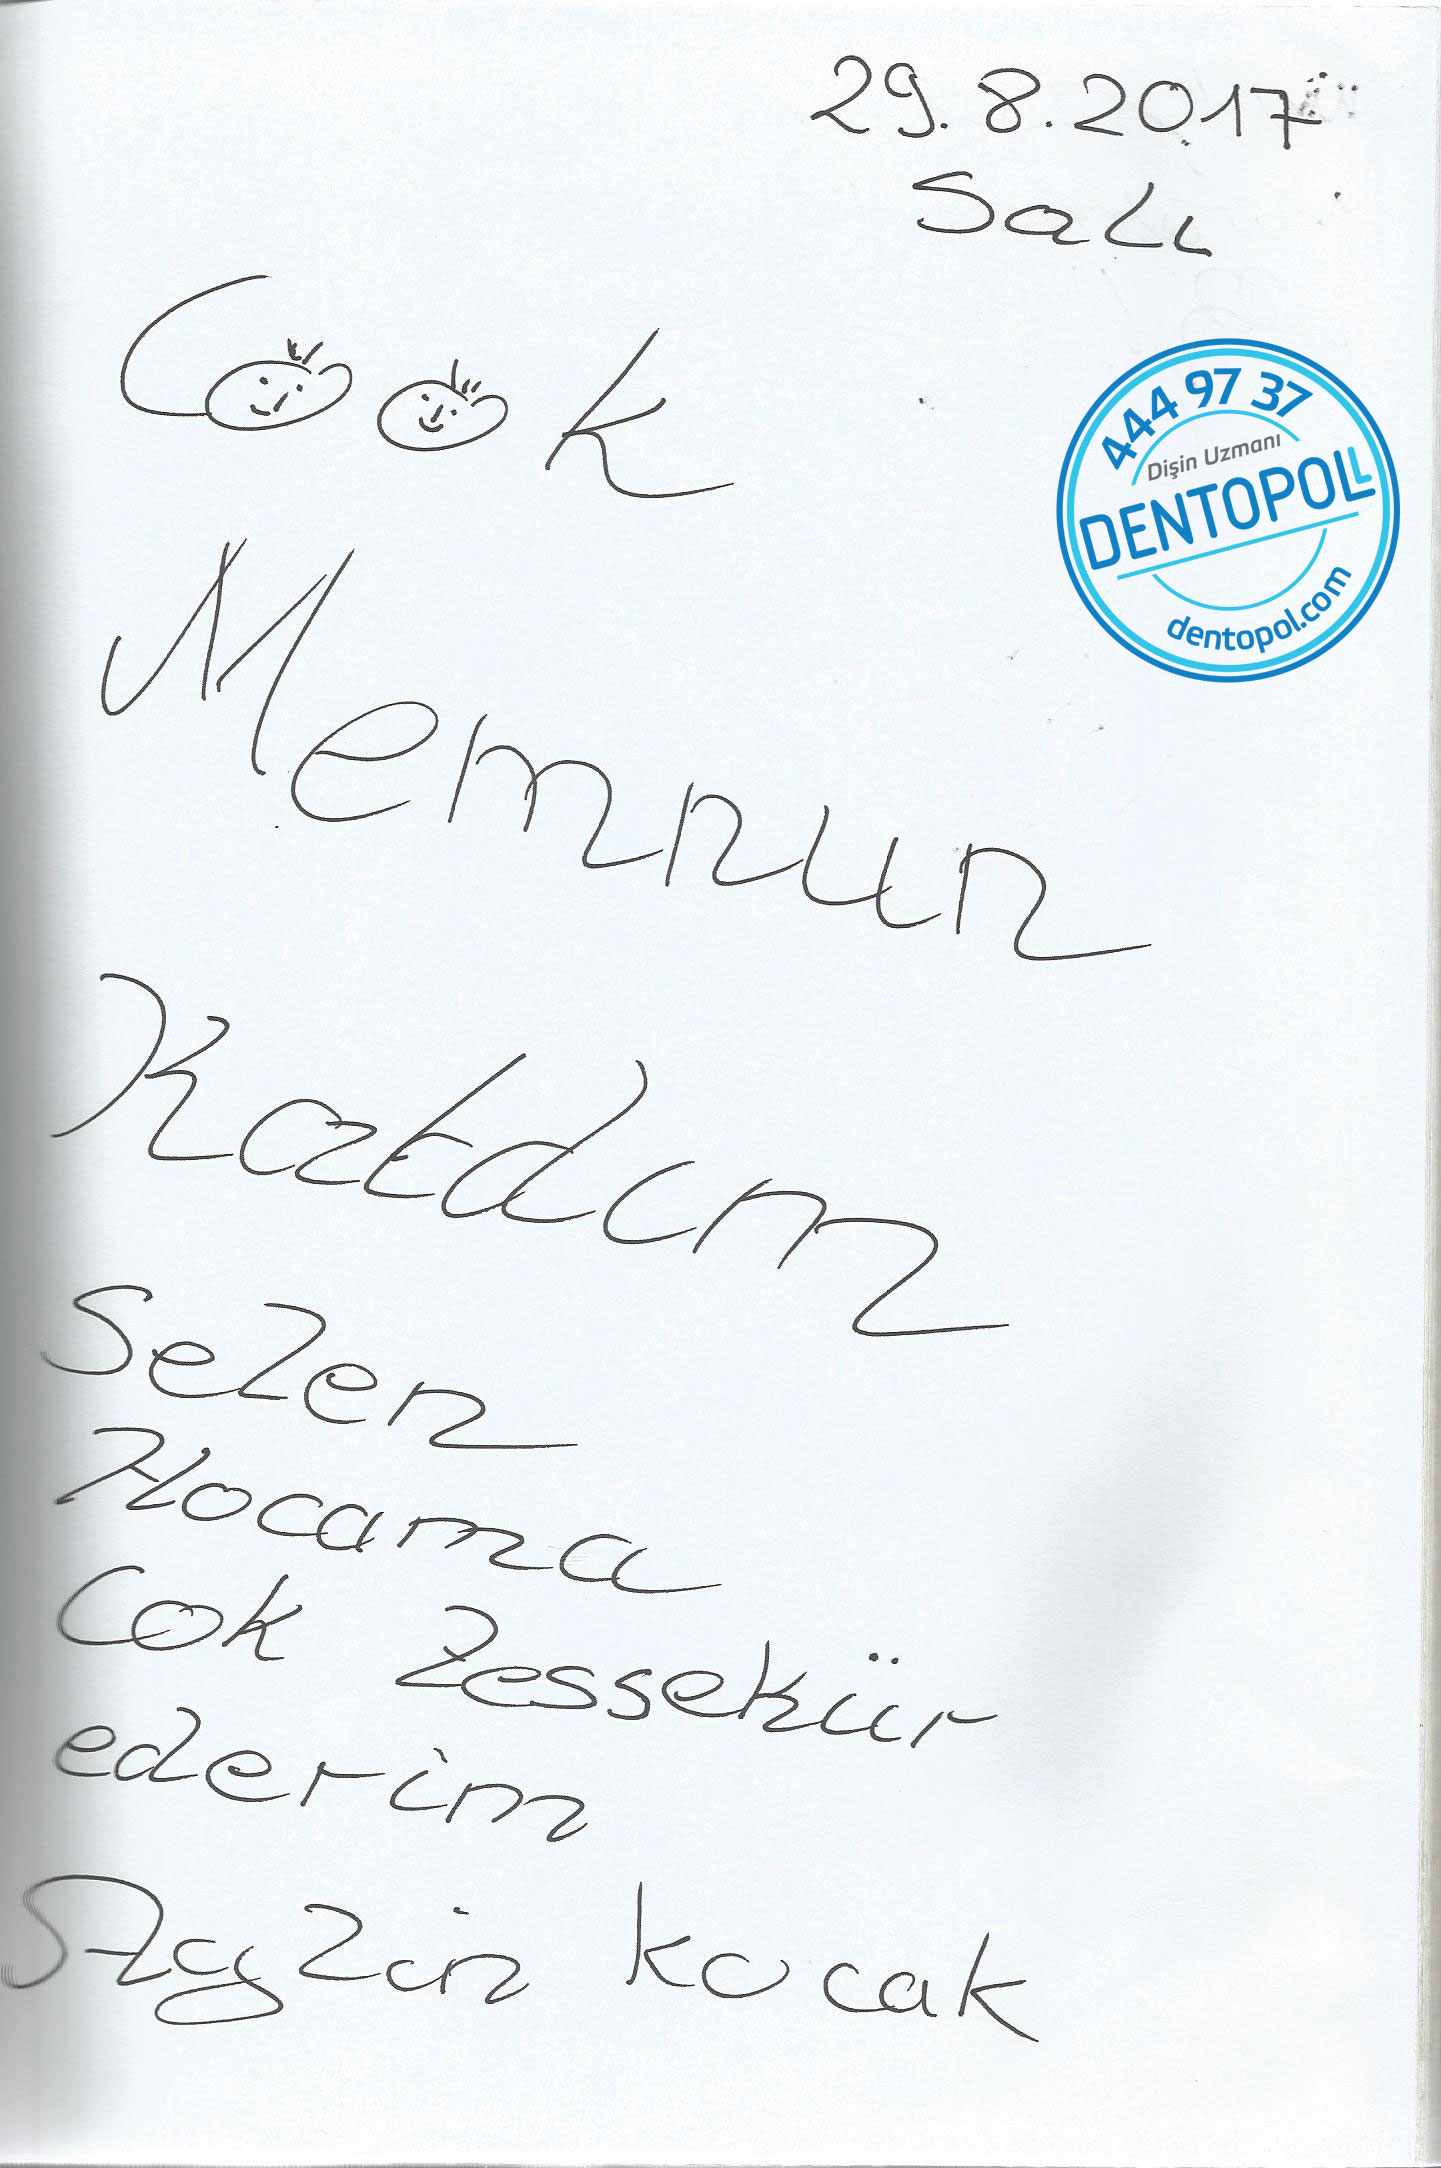 29.8.2017
Salı
444 97 37
Dişin Uzmanı
DENTOPOL
dentopol.com
Cook
Memnun
Kaldım
Selen
Hocama
Cok Tessekür
ederim
Kocak